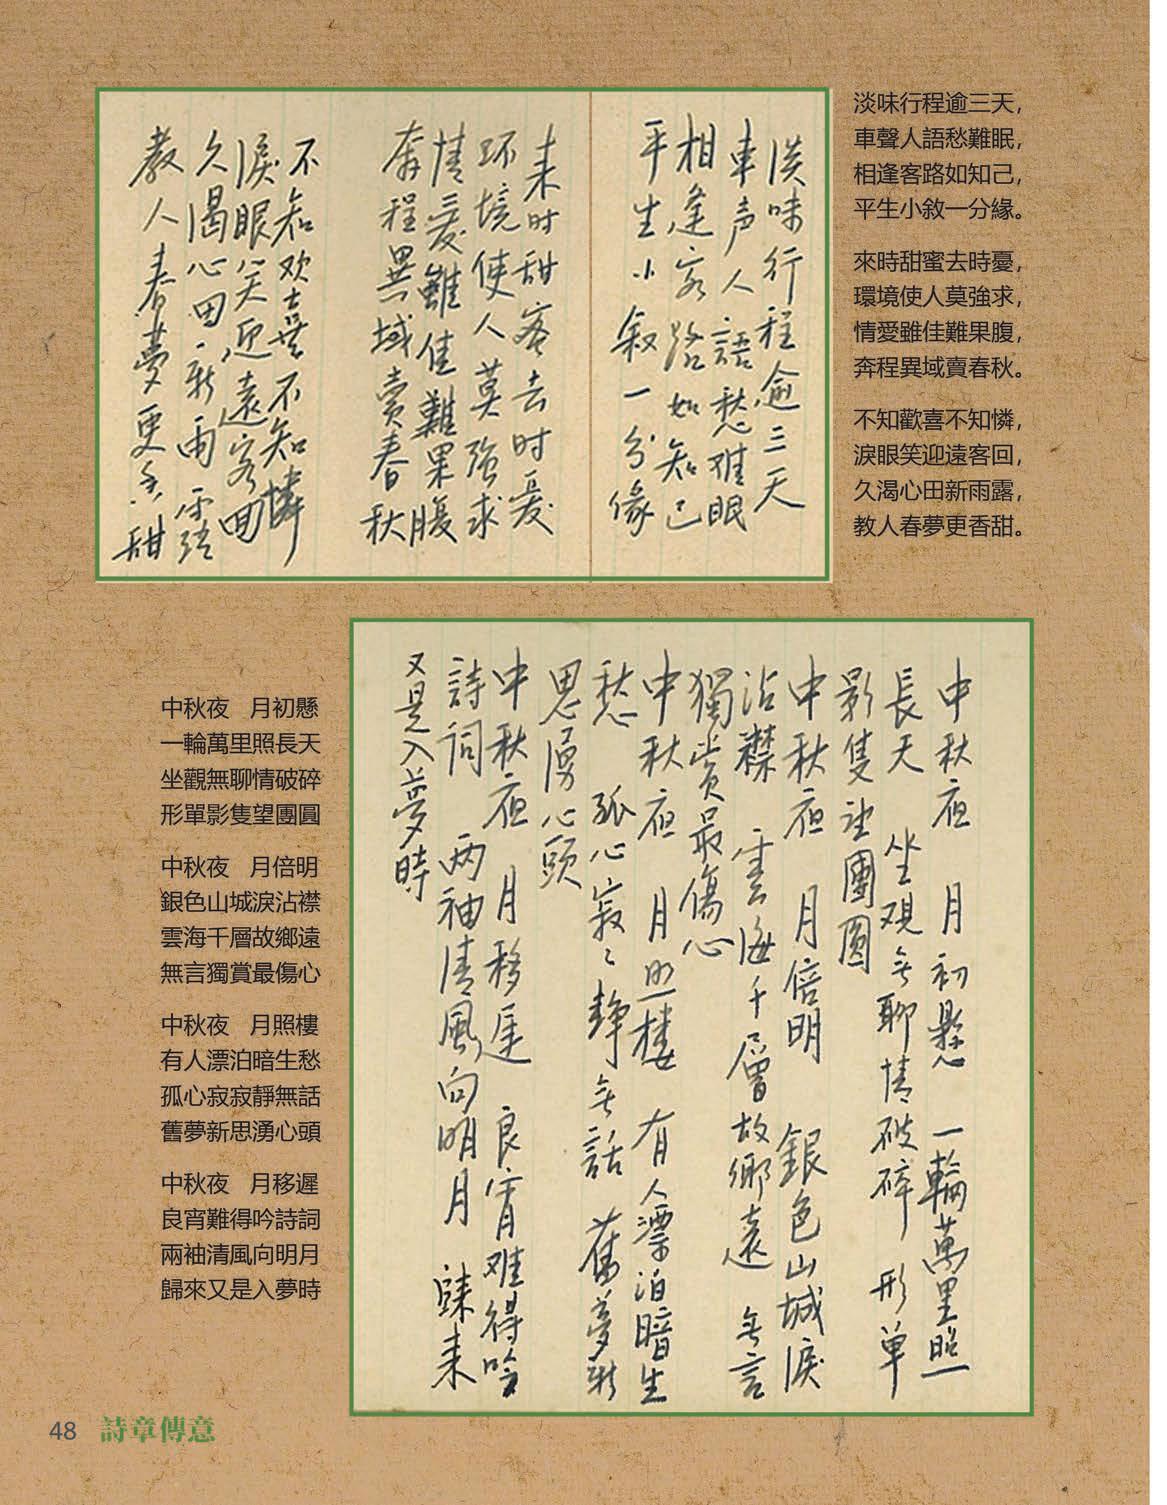 淡味行程逾三天，
車聲人語愁難眠，
相逢客路如知己，
平生小敘一分緣。
來時甜蜜去時憂，
環境使人莫強求，
情愛雖佳難果腹，
奔程異域賣春秋。
不知歡喜不知憐，
淚眼笑迎遠客回，
久渴心田新雨露，
教人春夢更香甜。
淡味行程逾三天
車声人語愁难眠
相逢客路如知己
平生小叙一分缘
来时甜蜜去时憂
环境使人莫強求
情爱雖佳難果腹
奔程異域賣春秋
不知欢喜不知憐
淚眼笑迎遠客回
久渴心田新雨露
教人春夢更香甜
中秋夜 月初懸 一輪萬里照
長天 坐观無聊情破碎 形单
影隻望團圓
中秋夜 月倍明 銀色山城淚
沾襟 雲海千層故鄉遠 無言
獨賞最傷心
中秋夜 月照樓 有人漂泊暗生
愁 孤心寂々静無話 舊夢新
思湧心頭
中秋夜 月移遲 良宵难得吟
詩詞 两袖清風向明月 歸来
又是入夢時
中秋夜 月初懸
一輪萬里照長天
坐觀無聊情破碎
形單影隻望團圓
中秋夜 月倍明
銀色山城淚沾襟
雲海千層故鄉遠
無言獨賞最傷心
中秋夜 月照樓
有人漂泊暗生愁
孤心寂寂靜無話
舊夢新思湧心頭
中秋夜 月移遲
良宵難得吟詩詞
兩袖清風向明月
歸來又是入夢時
48 詩章傳意